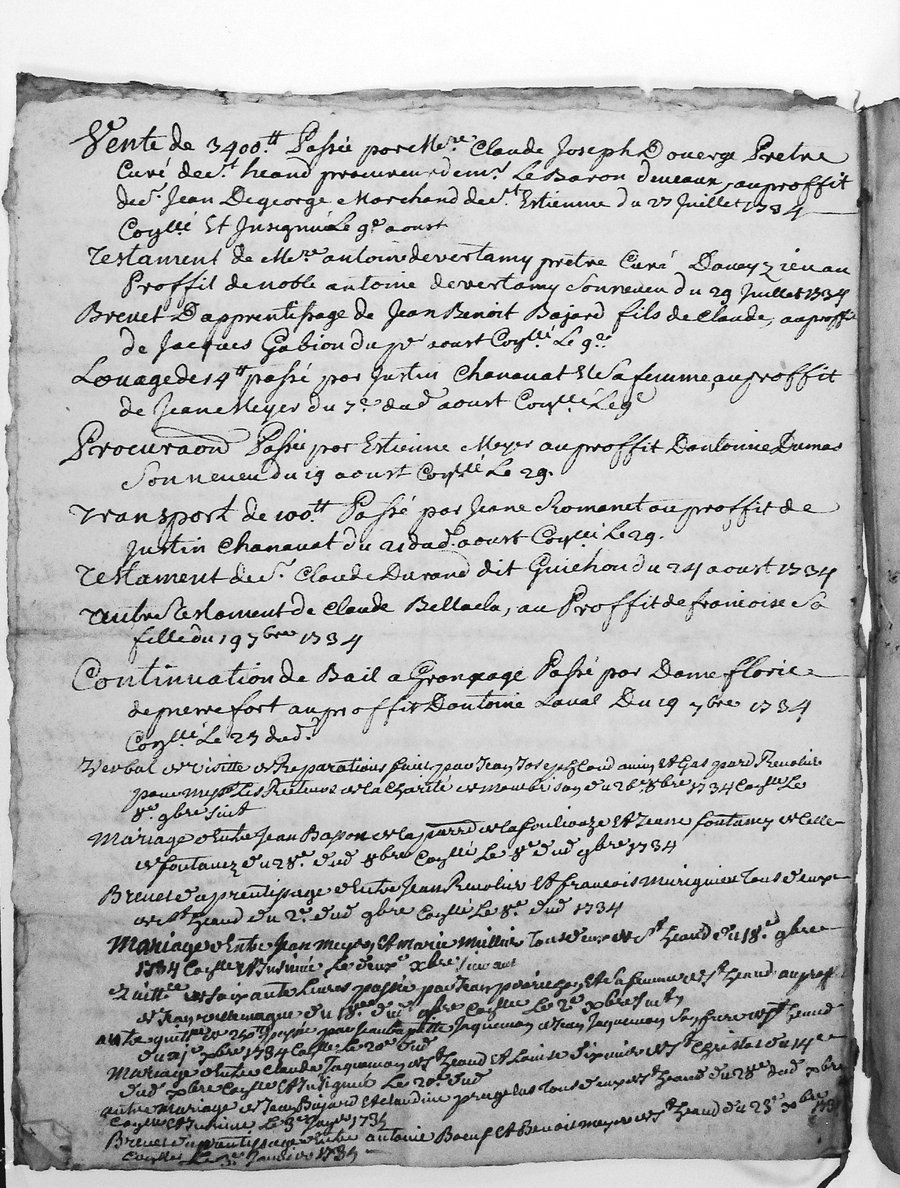 Vente de 3400.tt Passée par Me.re Claude Joseph Douerge Pretre
Curé de st heand procureur de mr. Le Baron demeaux, au proffit
de sr. Jean Degeorge Marchand de st. Estienne du 27 Juillet 1734
Coñllé Et Insignué Le 9e aoust
Testament de Me.re antoine de vertamy prêtre Curé Daveyzieu au
Proffit de noble antoine de vertamy Son neveu du 29 Juillet 1734
Brevet Dapprentissage de Jean Benoit Bajard fils de Claude, au proffit
de Jacques Gabion du pr aoust Coñllé Le 9e
Loüage de 14tt passé par Justin Chanavat Et Sa femme, au proffit
de Jean Meyer du 7e dud aoust Coñllé Le 9e
Procuraon Passée par Estienne Meyer au proffit Dantoinne Dumas
Son neveu du 19 aoust Coñllé Le 29.
Transport de 100.tt Passé par Jeane Romanet au proffit de
Justin Chanavat du 21 dud. aoust Coñllé Le 29.
Testament de sr. Claude Durand dit Guichon du 24 aoust 1734
autre Testament de Claude Bellacla, au Proffit de francoise Sa
fille du 19 7bre 1734
Continuation de Bail a Grangage Passé par Dame florie
de pierrefort au proffit Dantoine Laval Du 19 7bre 1734
Coñllé Le 27 dud.
Verbal de Visitte de Reparations faict par Jean Joseph et Gaspard Revolier
pour Les Recteurs de la Charité de Montbrison du 26e 8bre 1734 Coñllé Le
8e 9bre Suit
Mariage Entre Jean Bapon de la parre de la fouliouze Et Jeanne fontaney de Celle
de fontanez du 28e dud 8bre Coñllé Le 8e dud 9bre 1734
Brevet d'aprentissage Entre Jean Revolier Et francois Murignieu Tous deux
de st heand du 2e dud 9bre Coñllé Le 8e dud 1734
Mariage Entre Jean Meyer Et Marie Mullier Tous deux de st heand du 18e 9bre
1734 Coñllé Et Insinué Le deux xbre Suivant
Quittce de Soixante Livres passée par Jean Et Sa femme de st heand au proffit
de Jean villemagne du 18e dud 9bre Coñllé Le 2e xbre Suivt
autre quittce de passée par Jean baptiste Jaquemon a Jean Jaquemon Son frere de st heand
du xbre 1734 Coñllé Le 20e dud
Mariage Entre Claude Jaquemon de st heand Et Louise de st Cristol du 14e
dud xbre Coñllé Et Insignué Le 20e dud
autre Mariage de Jean Bajard Et Claudine Tous deux de st heand du 28e dud xbre
Coñllé Et Insinué Le 3e Janvr 1735
Brevet d'aprentissage Entre antoine Boeuf Et Benoit Meyer de st heand du 25e xbre 1734
Coñllé Le 3e Janvier 1735